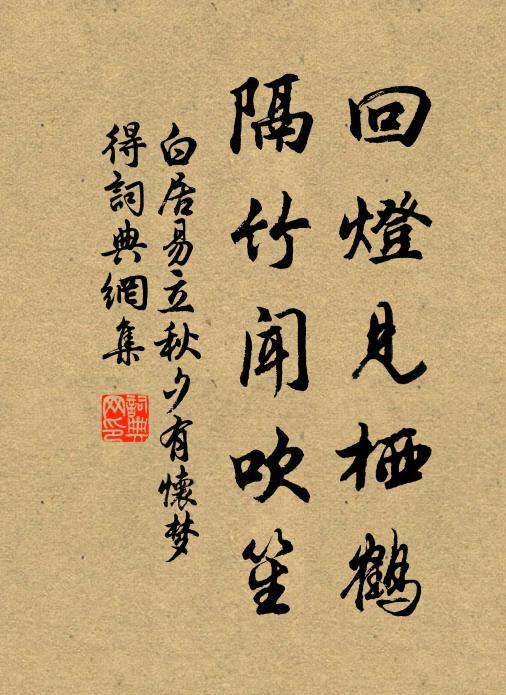 回燈見栖鶴
隔竹聞吹笙
白居易立秋夕有懷梦
得詞典網集
詞典
网印